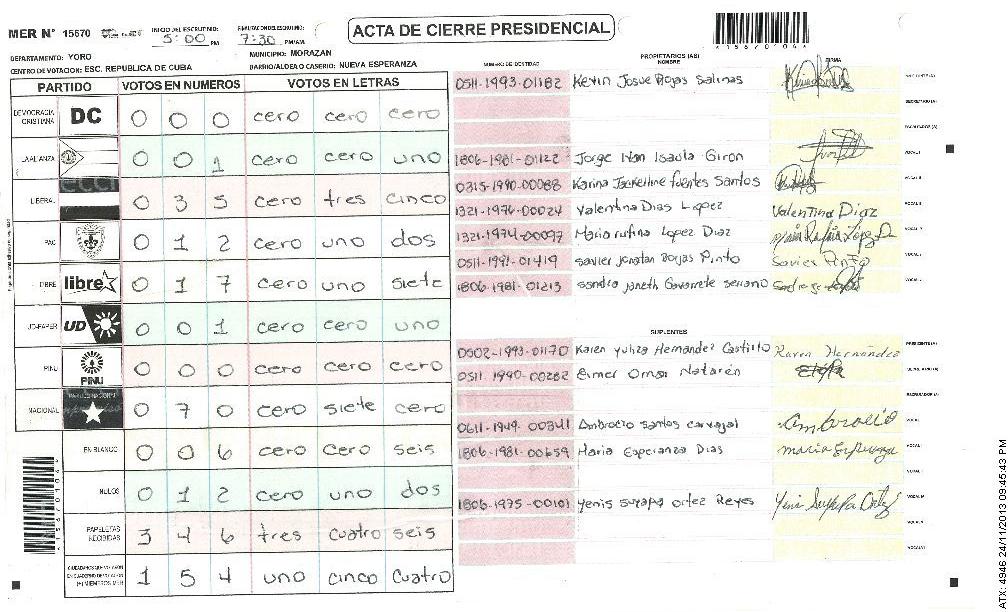 MER N° 15670 INICIO DEL ESCRUTINIO: 5:00 PM FINALIZACION DEL ESCRUTINIO: 7:30 PM/AM
ACTA DE CIERRE PRESIDENCIAL
DEPARTAMENTO: YORO MUNICIPIO: MORAZAN
CENTRO DE VOTACION: ESC. REPUBLICA DE CUBA BARRIO/ALDEA O CASERIO: NUEVA ESPERANZA
PARTIDO VOTOS EN NUMEROS VOTOS EN LETRAS
DEMOCRACIA CRISTIANA DC 0 0 0 cero cero cero
LA ALIANZA 0 0 1 cero cero uno
LIBERAL 0 3 5 cero tres cinco
PAC 0 1 2 cero uno dos
LIBRE libre 0 1 7 cero uno siete
UD-FAPER UD 0 0 1 cero cero uno
PINU PINU 0 0 0 cero cero cero
NACIONAL 0 7 0 cero siete cero
EN BLANCO 0 0 6 cero cero seis
NULOS 0 1 2 cero uno dos
PAPELETAS RECIBIDAS 3 4 6 tres cuatro seis
CIUDADANOS QUE VOTARON EN CUADERNO DE VOTACION (+) MIEMBROS MER 1 5 4 uno cinco cuatro
NUMERO DE IDENTIDAD PROPIETARIOS (AS) NOMBRE FIRMA
0511-1993-01182 Kevin Josue Rojas Salinas
1806-1981-01122 Jorge Ivan Isaula Giron
0315-1990-00088 Karina Jackelline fuentes Santos
1321-1976-00024 Valentina Dias Lopez Valentina Diaz
1321-1974-00097 Maria rufina Lopez Diaz
0511-1991-01419 savier jonatan Borjas Pinto Savier Pinto
1806-1981-01213 sandra janeth Gavarrete serrano
SUPLENTES
0502-1993-01170 Karen Yuliza Hernandez Castillo Karen Hernandez
0511-1990-00282 Elmer Omar Natarén
0611-1949-00341 Ambrocio santos carvajal Ambrocio
1806-1981-00659 Maria Esperanza Dias maria Esperanza
1806-1975-00101 Yenis suyapa ortez Reyes Yenis Suyapa Ortez
ATX: 4946 24/11/2013 09:45:43 PM